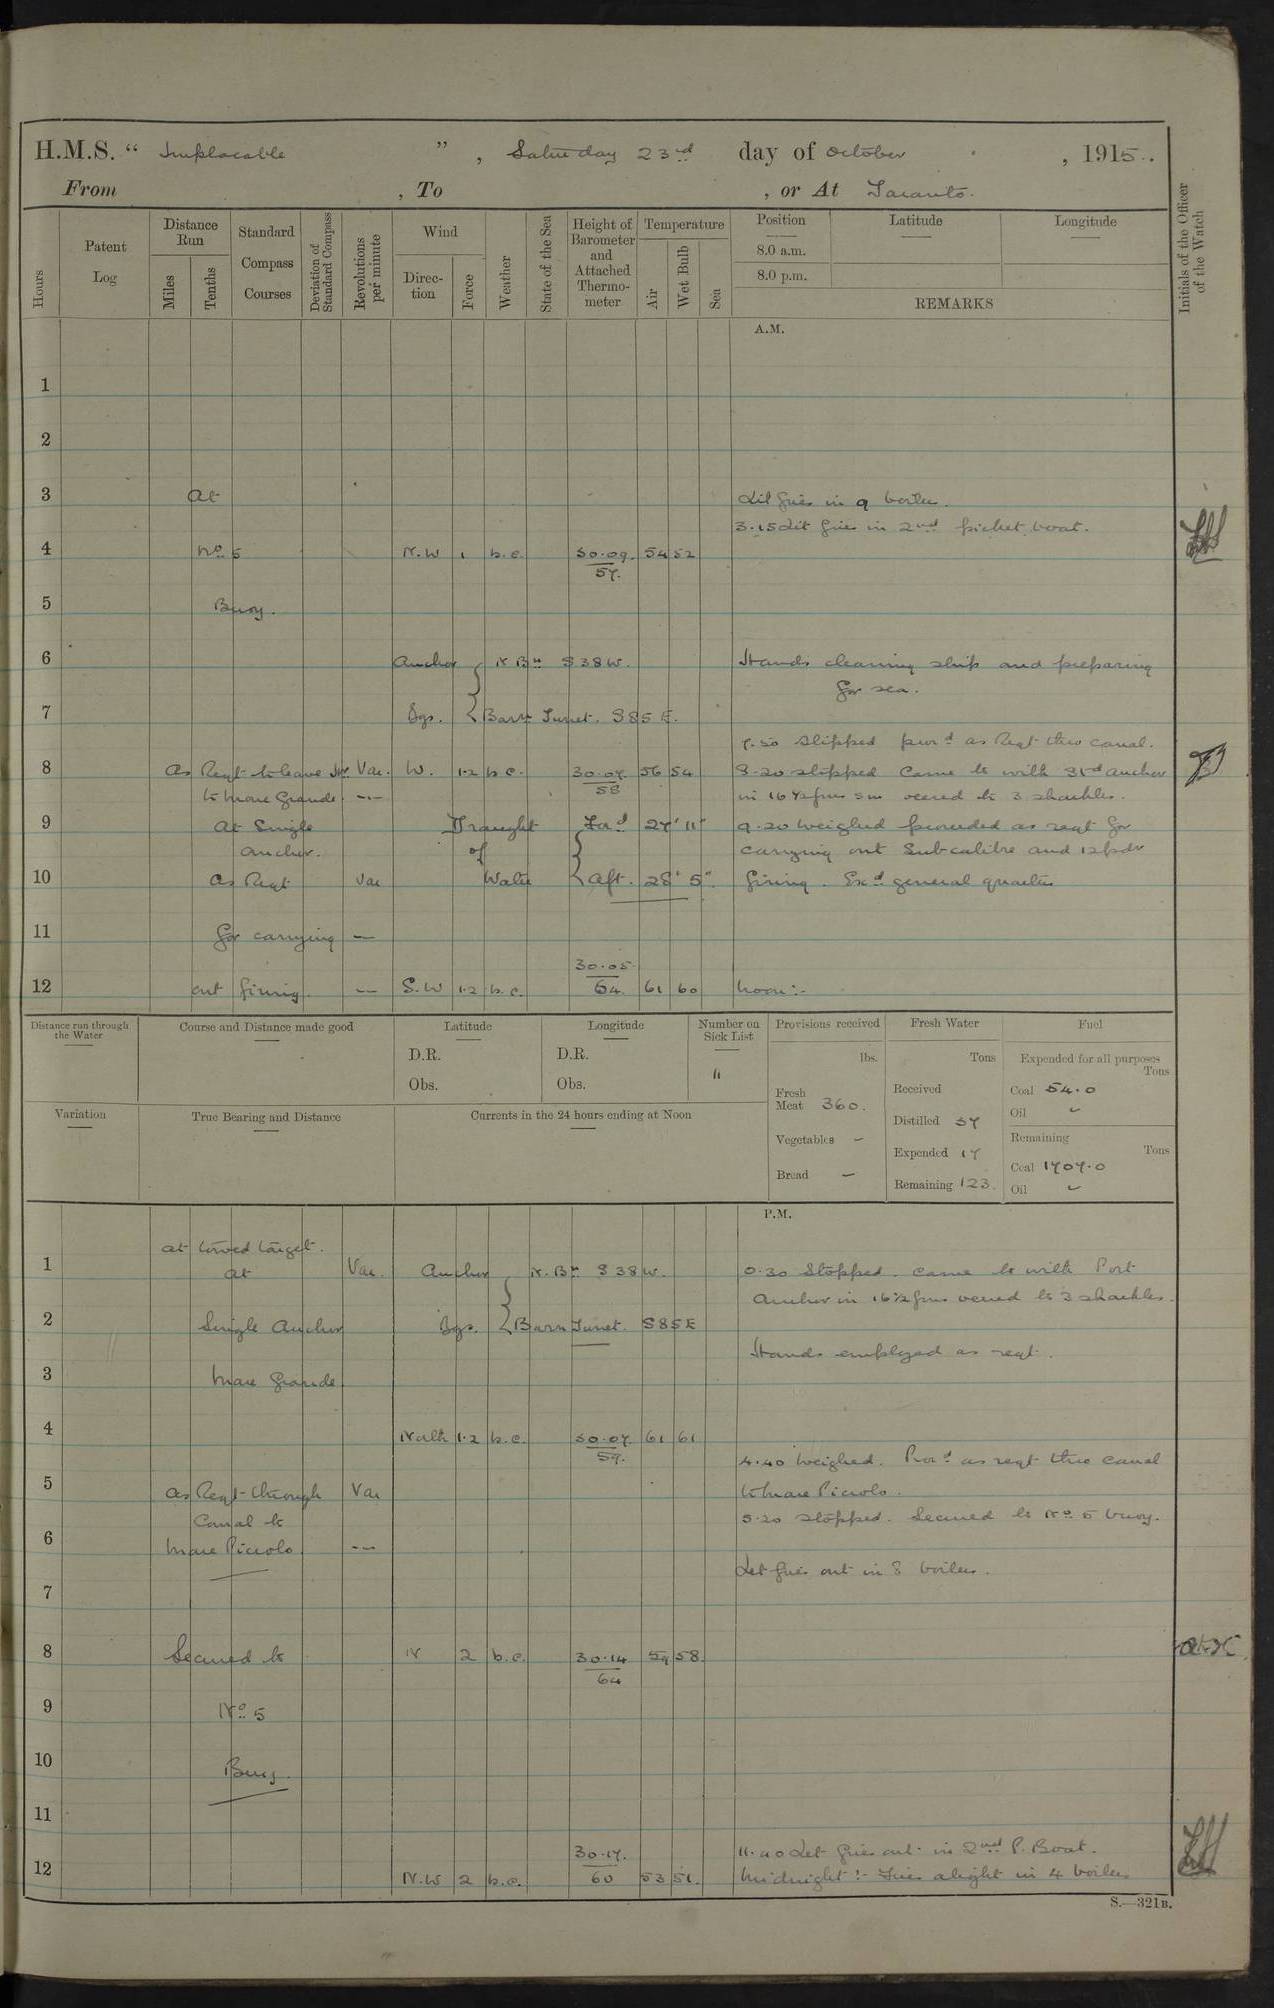 H.M.S. “ Implacable ” , Saturday 23rd day of October , 1915.
From , To , or At Taranto.
Hours
Patent Log
Distance Run
Miles
Tenths
Standard Compass Courses
Deviation of Standard Compass
Revolutions per minute
Wind
Direction
Force
Weather
State of the Sea
Height of Barometer and Attached Thermometer
Temperature
Air
Wet Bulb
Sea
Position
Latitude
Longitude
8.0 a.m.
8.0 p.m.
REMARKS
Initials of the Officer of the Watch
A.M.
1
2
3 At Lit fires in 9 boilers.
3.15 Lit fires in 2nd picket boat.
4 No 5 N.W 1 b.c. 30.09 57. 54 52
5 Buoy.
6 Anchor N Bn S 38 W. Hands cleaning ship and preparing
for sea.
7 Bgs. Barn Turret. S 85 E.
7.50 Slipped procd as Reqt thro canal.
8 As Reqt to leave Var. W. 1.2 b.c. 30.07 58 56 54 8.20 stopped Came to with Stbd anchor
to Mare Grande. —"— in 16½ fms veered to 3 shackles.
9 At Single Draught Ford 27' 11" 9.20 Weighed proceeded as reqt for
Anchor. of carrying out Subcalibre and 12 pdr
10 As Reqt Var Water Aft. 28' 5" firing. Exd general quarters
11 for carrying —
12 out firing. — S.W 1.2 b.c. 30.05 64. 61 60 Noon:-
Distance run through the Water
Course and Distance made good
Latitude
D.R.
Obs.
Longitude
D.R.
Obs.
Number on Sick List
11
Provisions received
lbs.
Fresh Meat 360.
Vegetables –
Bread –
Fresh Water
Tons
Received
Distilled 37
Expended 17
Remaining 123.
Fuel
Expended for all purposes
Tons
Coal 54.0
Oil –
Remaining
Tons
Coal 1707.0
Oil –
Variation
True Bearing and Distance
Currents in the 24 hours ending at Noon
P.M.
at towed target.
1 At Var. Anchor N. Bn S 38 W. 0.30 Stopped. Came to with Port
Anchor in 16½ fms veered to 3 shackles.
2 Single Anchor Bgs. Barn Turret. S 85 E
Hands employed as reqt.
3 Mare Grande
4 North 1.2 b.c. 30.07 59. 61 61
4.40 Weighed. Procd as reqt thro canal
5 As Reqt through Var to Mare Piccolo.
Canal to 5.20 stopped. Secured to No 5 buoy.
6 Mare Piccolo —"—
Let fires out in 8 boilers.
7
8 Secured to N 2 b.c. 30.14 64 59 58.
9 No 5
10 Buoy.
11
11.40 Let fires out in 2nd P. Boat.
12 N.W 2 b.c. 30.17. 60 53 51. Midnight:- Fires alight in 4 boilers
S.—321B.